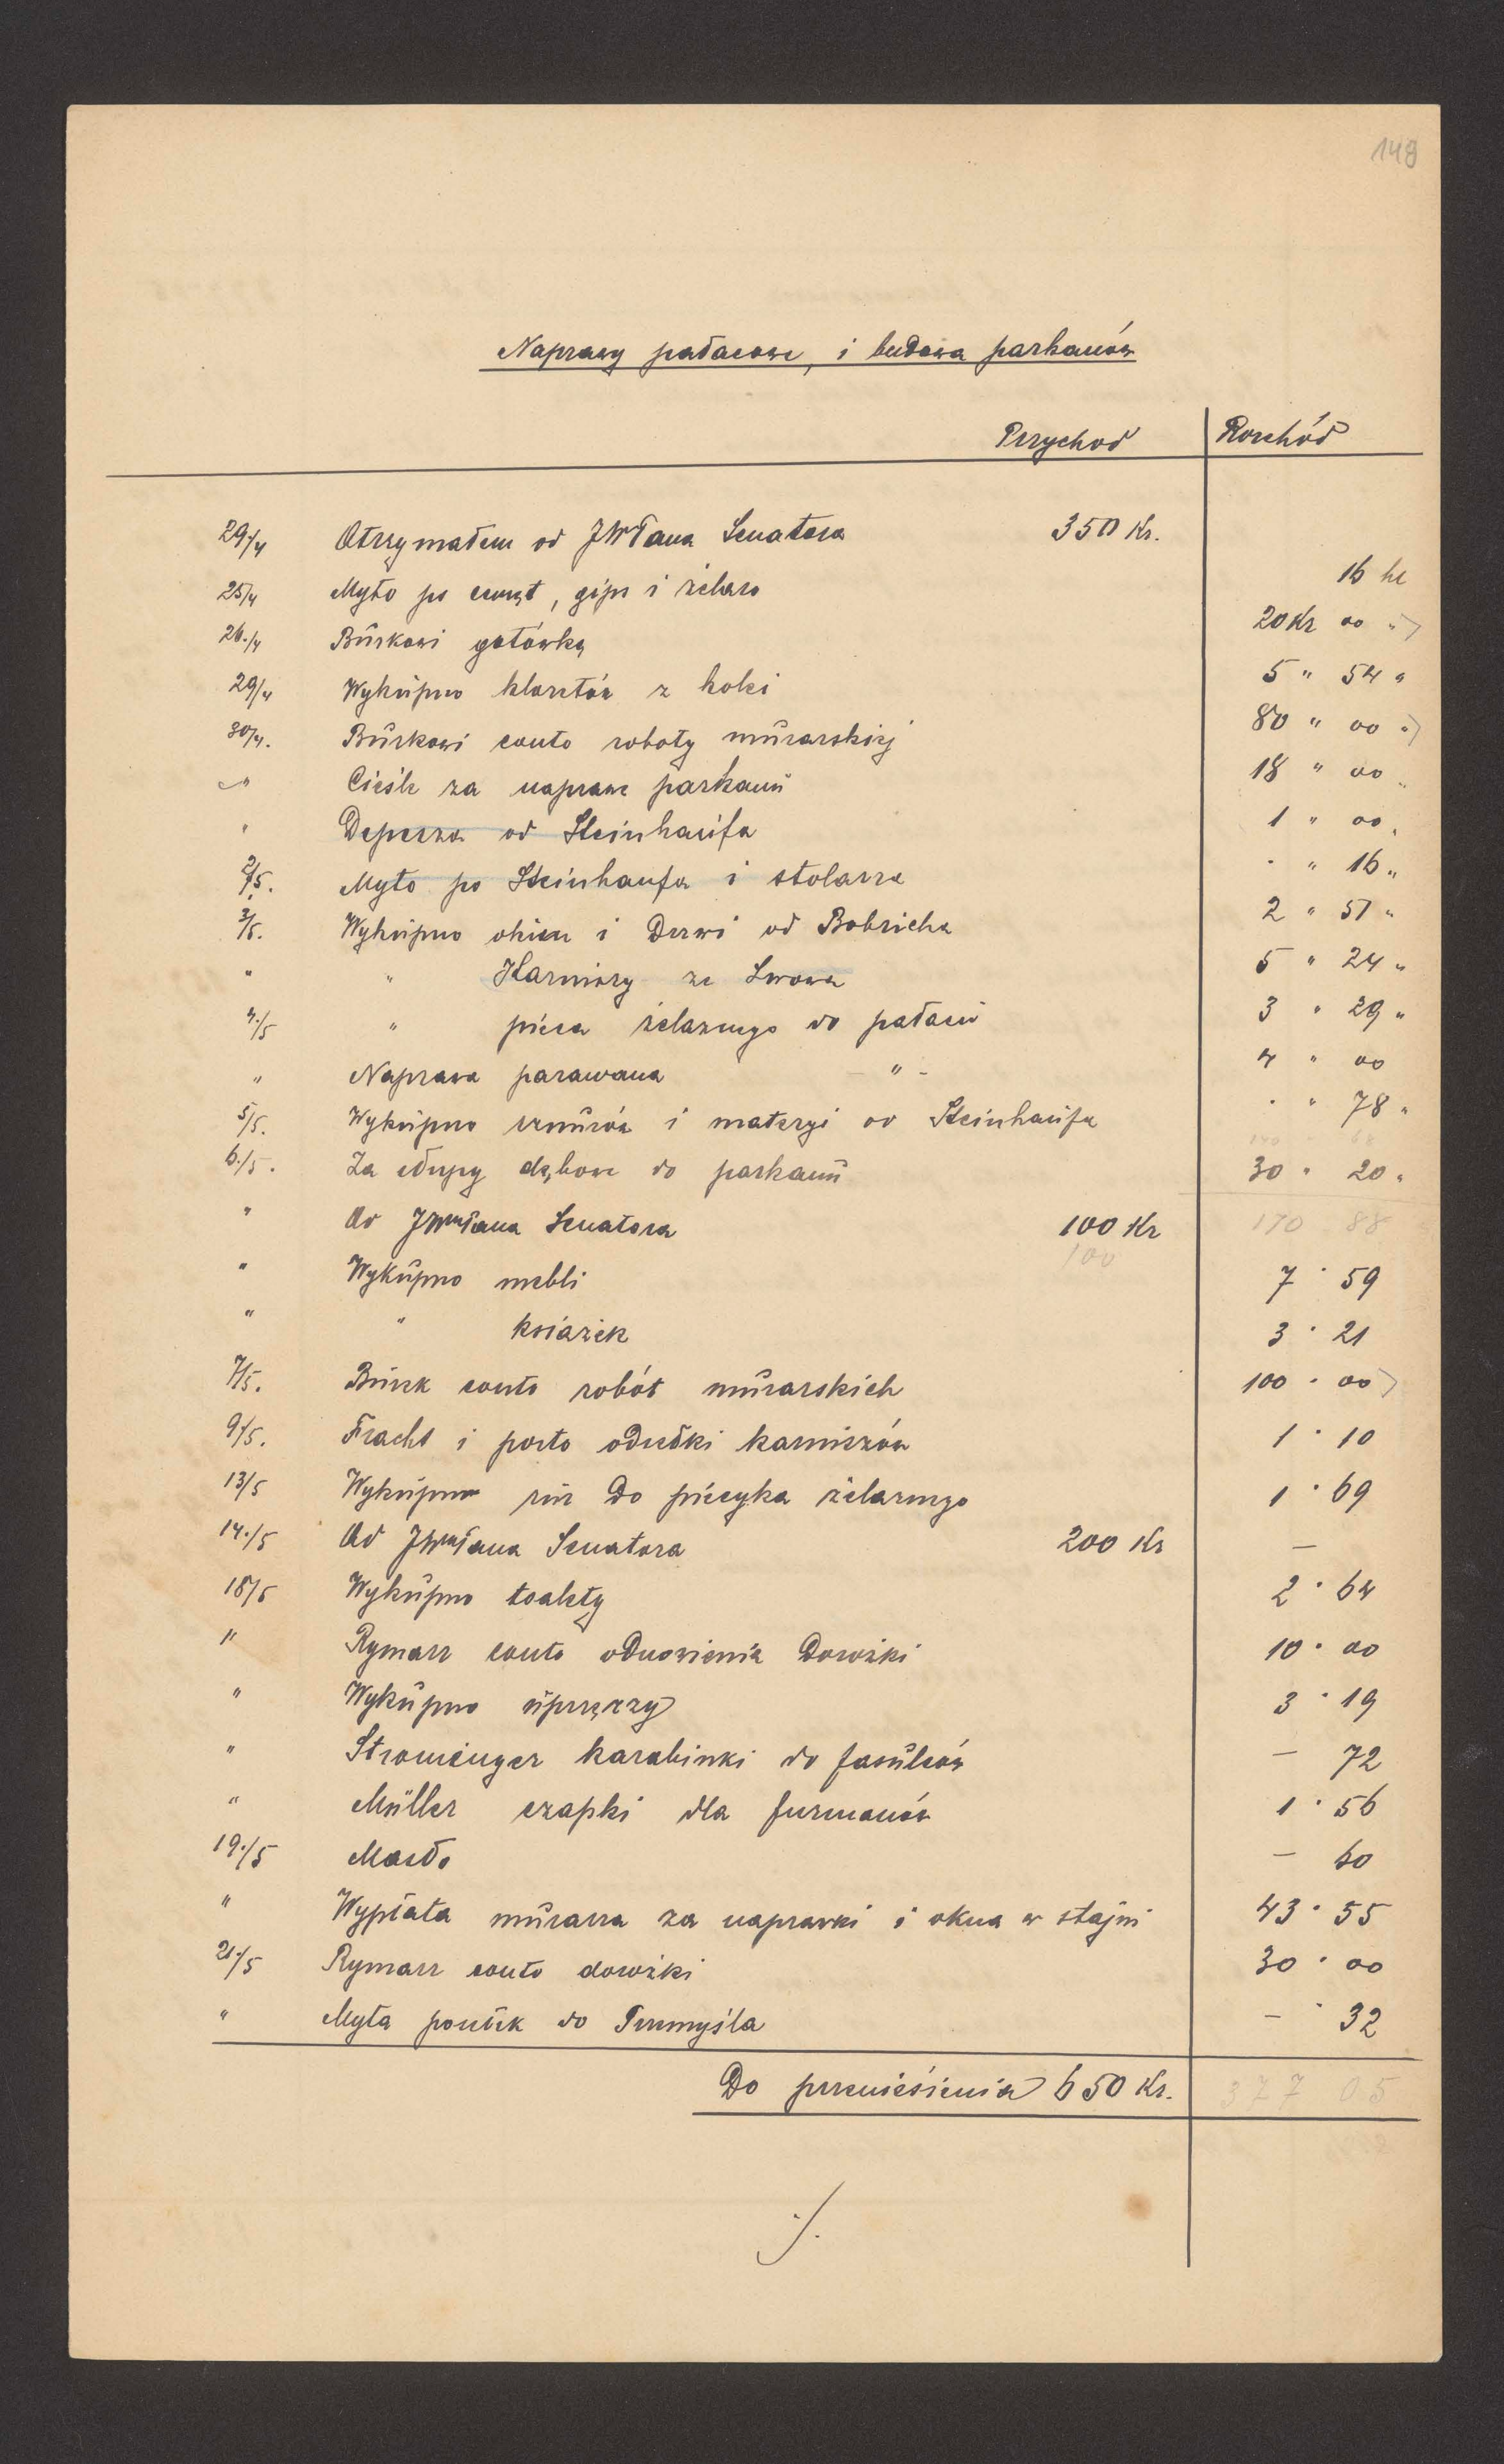 149
Naprawy pałacowe, i budowa parkanów
Przychod Rozchód
29./4 Otrzymałem od JWPana Senatora 350 Kr.
25/4 Myto po cement, gips i żelazo 16 hl
26./4 Burkowi gotówką 20 Kr 00 "
29/4 Wykupno klozetów z kolei 5 " 54 "
30/4. Burkowi conto roboty murarskiej 80 " 00 "
" Cieśle za naprawe parkanu 18 " 00 "
" Depesza od Steinhaufa 1 " 00 "
2/5. Myto po Steinhaufa i stolarza " 16 "
3/5. Wykupno okien i Drzwi od Bobricha 2 " 51 "
" " Karniszy ze Lwowa 5 " 24 "
4./5 " pieca żelaznego do pałacu 3 " 29 "
" Naprawa parawana - " - 4 " 00
5/5. Wykupno sznurów i materyi od Steinhaufa " 78 "
6./5. Za słupy dębowe do parkanu 30 " 20 "
" Od JWPana Senatora 100 Kr 170 88
100
" Wykupno mebli 7 " 59
" " ksiażek 3 " 21
7/5. Burek conto robót murarskich 100 " 00
9/5. Fracht i porto odsełki karniszów 1 " 10
13/5 Wykupno rur do piecyka żelaznego 1 " 69
14./5 Od JWPana Senatora 200 Kr —
18/5 Wykupno toalety 2 " 64
" Rymarz conto odnowienia Dorożki 10 " 00
" Wykupno uprzęzzy 3 " 19
" Stromenger karabinki do fasulców — 72
" Müller czapki dla furmanów 1 " 56
19./5 Masło — 60
" Wypłata murarza za naprawki i okna w stajni 43 " 55
21./5 Rymarz conto dorożki 30 " 00
" Myta posełek do Przemyśla — " 32
Do przeniesienia 650 Kr. 377 05
./.